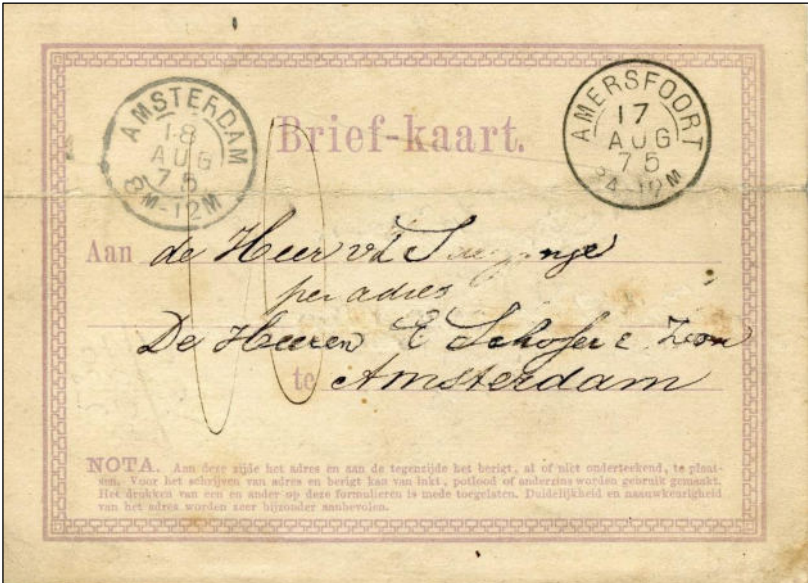 AMSTERDAM
18
AUG
75
8M-12M
Brief-kaart.
AMERSFOORT
17
AUG
75
-12M
10
Aan de Heer vd
per adres
De Heeren E Schofer & Zoon
te Amsterdam
NOTA. Aan deze zijde het adres en aan de tegenzijde het berigt, al of niet onderteekend, te plaat-
sen. Voor het schrijven van adres en berigt kan van inkt, potlood of anderzins worden gebruik gemaakt.
Het drukken van een en ander op deze formulieren is mede toegelaten. Duidelijkheid en naauwkeurigheid
van het adres worden zeer bijzonder aanbevolen.